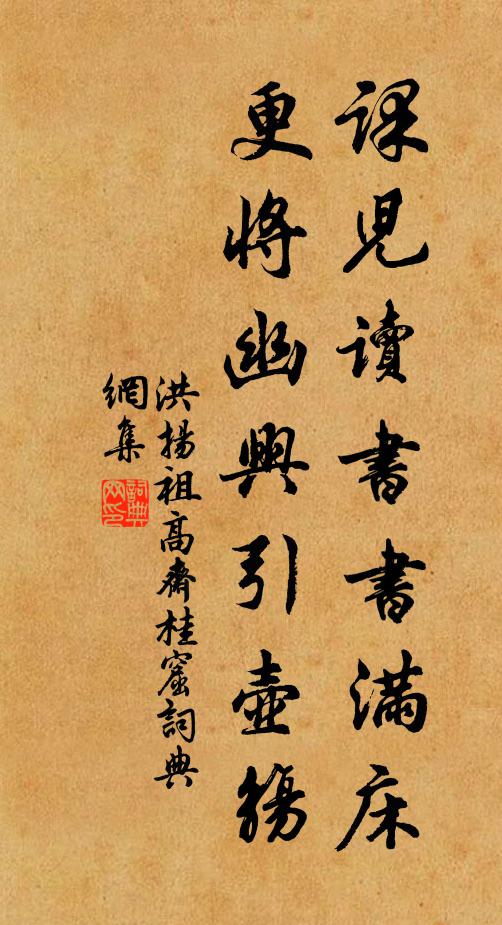 課兒讀書書滿床
更將幽興引壺觴
洪揚祖高齋桂窟詞典
網集
詞典
网印